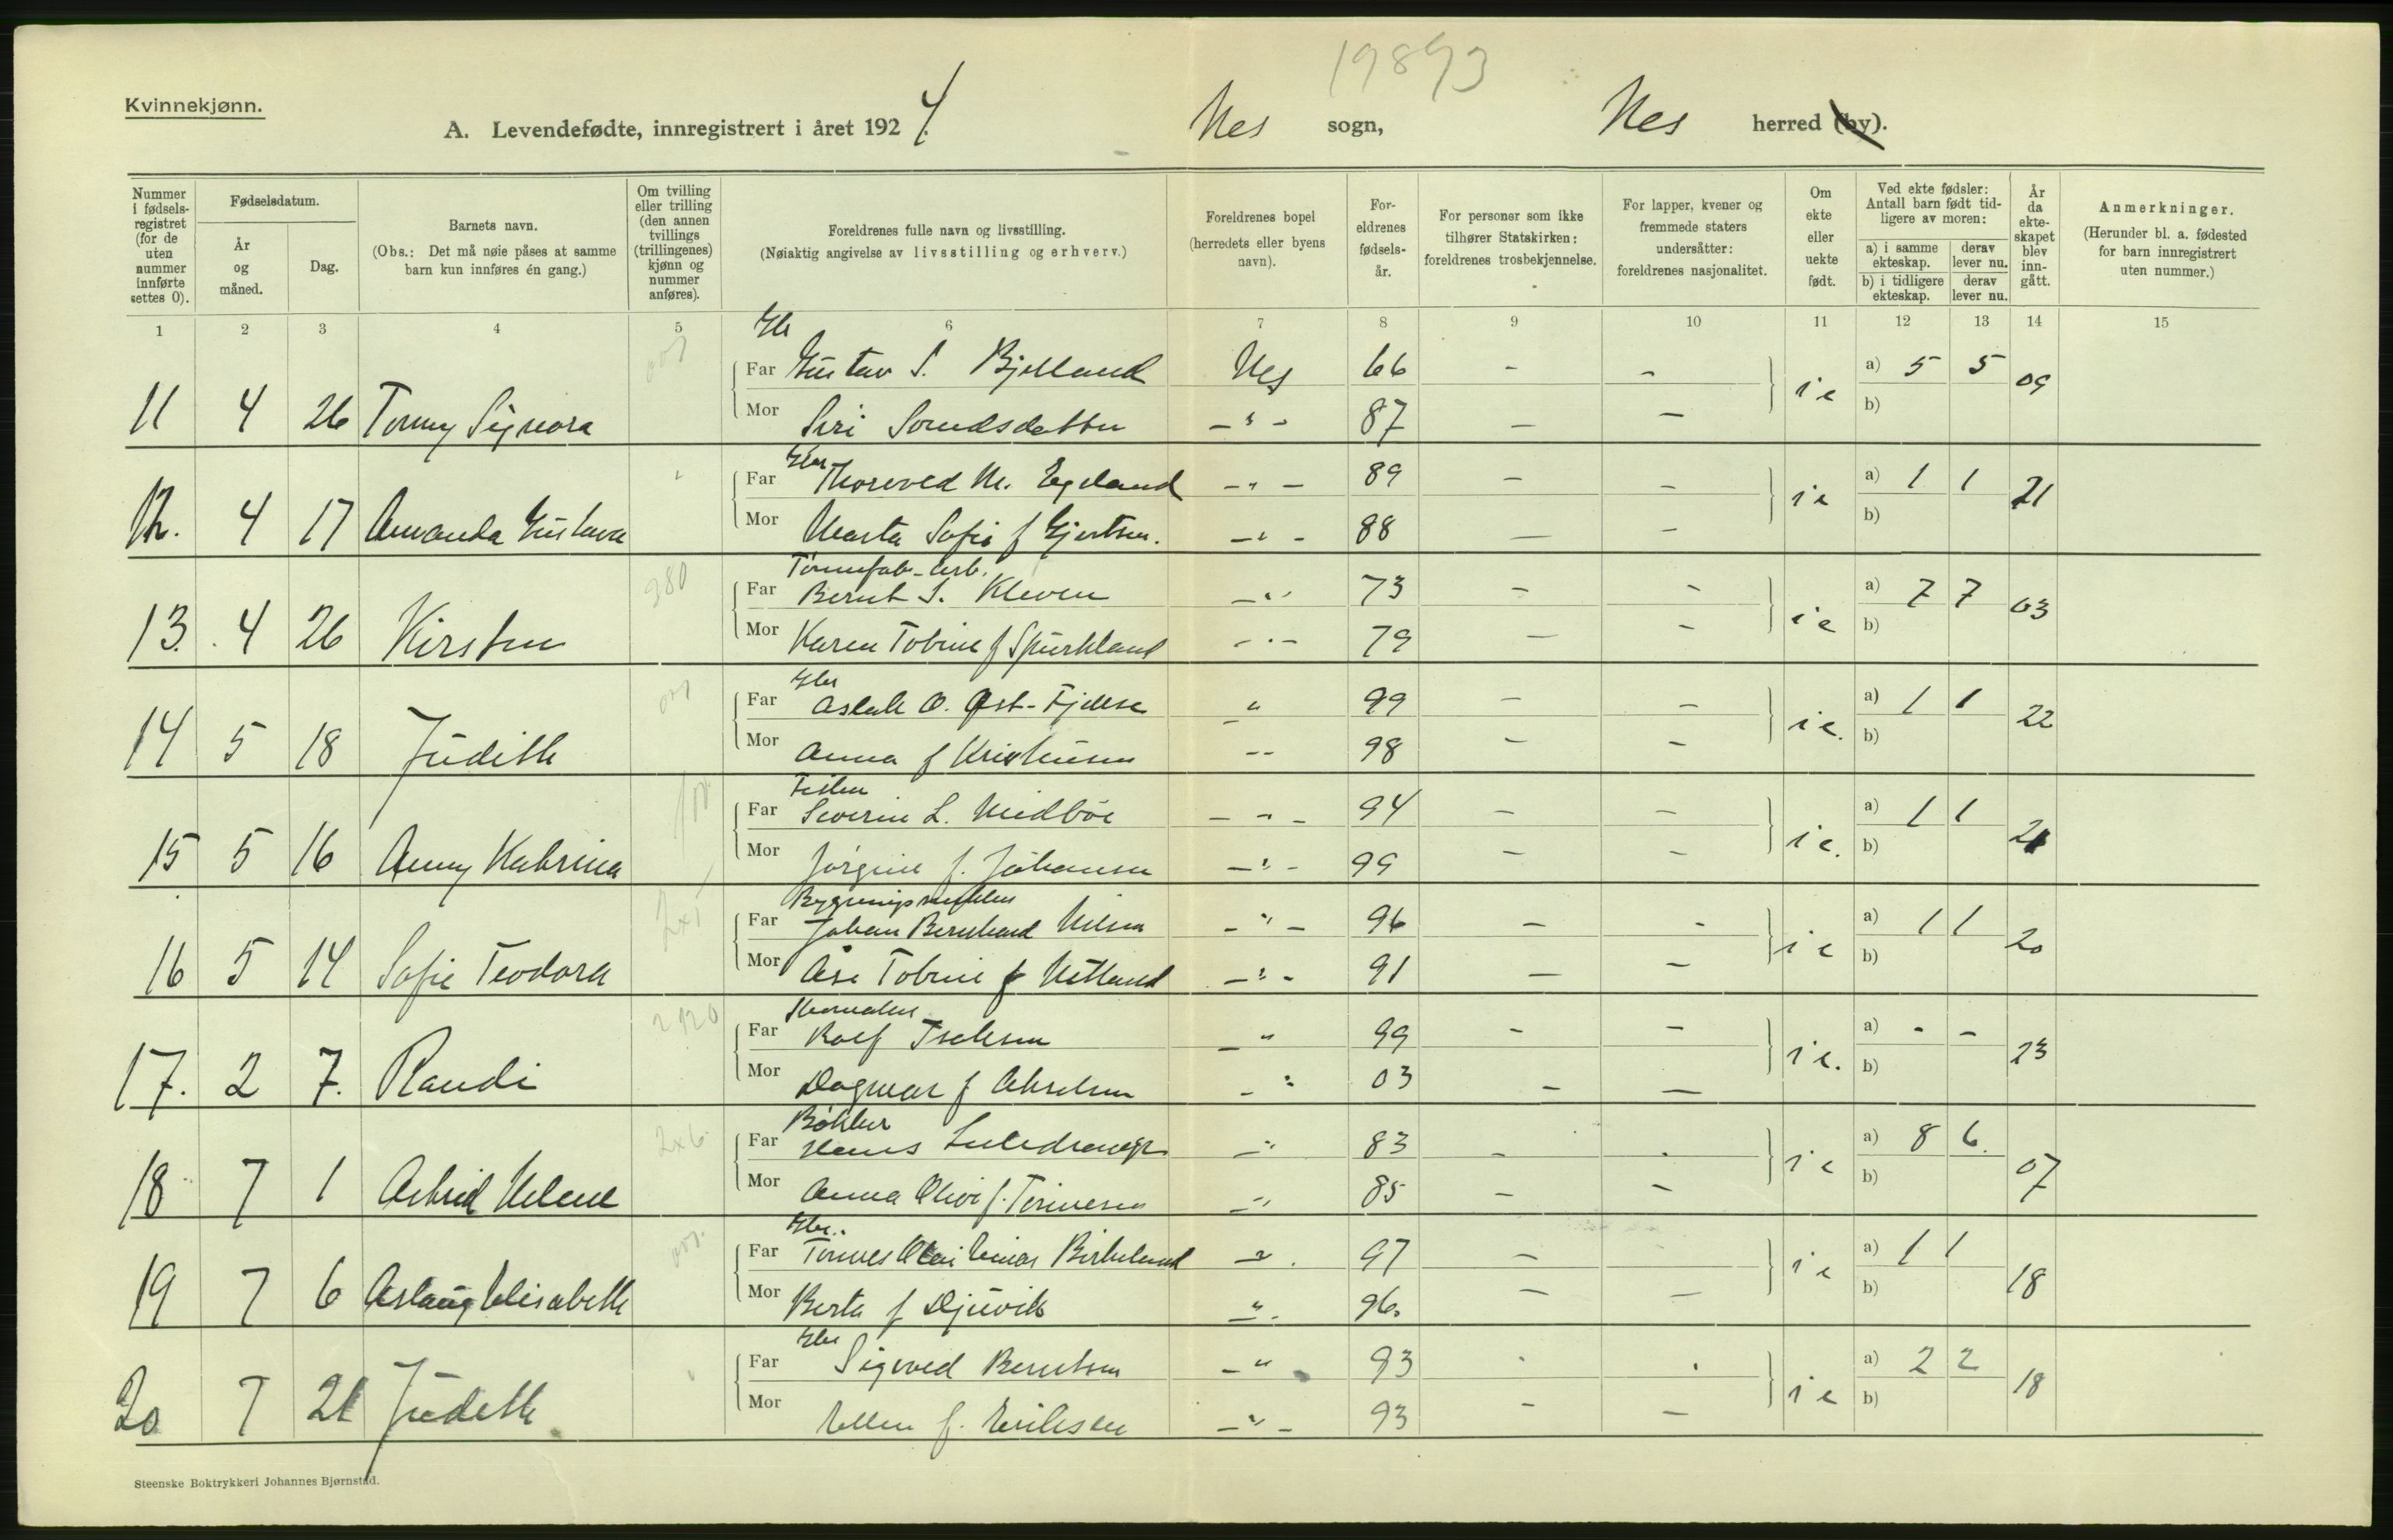 19893
Kvinnekjønn.
A. Levendefødte, innregistrert i året 1924. Nes sogn, Nes herred (by).
Nummer i fødsels-registret (for de uten nummer innførte settes 0).
Fødselsdatum.
År og måned.
Dag.
Barnets navn.
(Obs.: Det må nøie påses at samme barn kun innføres én gang.)
Om tvilling eller trilling (den annen tvillings (trillingenes) kjønn og nummer anføres).
Foreldrenes fulle navn og livsstilling.
(Nøiaktig angivelse av livsstilling og erhverv.)
Foreldrenes bopel (herredets eller byens navn).
For-eldrenes fødsels-år.
For personer som ikke tilhører Statskirken: foreldrenes trosbekjennelse.
For lapper, kvener og fremmede staters undersåtter: foreldrenes nasjonalitet.
Om ekte eller uekte født.
Ved ekte fødsler: Antall barn født tid-ligere av moren:
a) i samme ekteskap. derav lever nu.
b) i tidligere ekteskap. derav lever nu.
År da ekte-skapet blev inn-gått.
Anmerkninger.
(Herunder bl. a. fødested for barn innregistrert uten nummer.)
1 2 3 4 5 6 7 8 9 10 11 12 13 14 15
Gbr
Far Gustav S. Bjelland Nes 66 - - a) 5 5
11 4 26 Tomy Signora ie 09
Mor Siri Somdsdatter - " - 87 - - b)
Gbr
Far Thorvald M. Egeland - " - 89 - - a) 1 1
12. 4 17 Amanda Gustava ie 21
Mor Marta Sofie f Gjertsen. - " - 88 - - b)
Tønnefab-arb.
380
Far Bernt S. Kleven - " - 73 - - a) 7 7
13. 4 26 Kirsten ie 03
Mor Karen Tobine f Spurkland - " - 79 - - b)
Gbr
Far Aslak O. Øst-Fjellse - " 99 - - a) 1 1
14 5 18 Judith ie. 22
Mor Anna f Kristensen - - 98 - - b)
Fisker
Far Severin L. Midbøe - " - 94 - - a) 1 1
15 5 16 Anny Katrina ie. 21
Mor Jørgine f. Johansen - " - 99 - - b)
Far Johan Bernhard Nilsen - " - 96 - - a) 1 1
16 5 14 Sofie Teodora ie 20
Mor Åse Tobine f Netland - " - 91 - - b)
Skomaker
Far Rolf Isaksen - " 99 - - a) - -
17. 2 7. Randi ie. 23
Mor Dagmar f Akselsen - " 03 - - b)
Bøkker
2x6
Far Hans - " 83 - . a) 8 6.
18 7 1 Astrid Helene ie 07
Mor Anna Olive f. Tønnesen - " 85 - - b)
Gbr.
Far Tønnes Olai Einar Birkeland - " . 97 - a) 1 1
19 7 6 Aslaug Elisabeth ie 18
Mor Berta f Djuvik " - 96. - - b)
Gbr
Far Sigvald Berntsen - " 93 . . a) 2 2
20 7 21 Judith ie 18
Mor Ellen f. Eriksen - " - 93 - - b)
Steenske Boktrykkeri Johannes Bjørnstad.